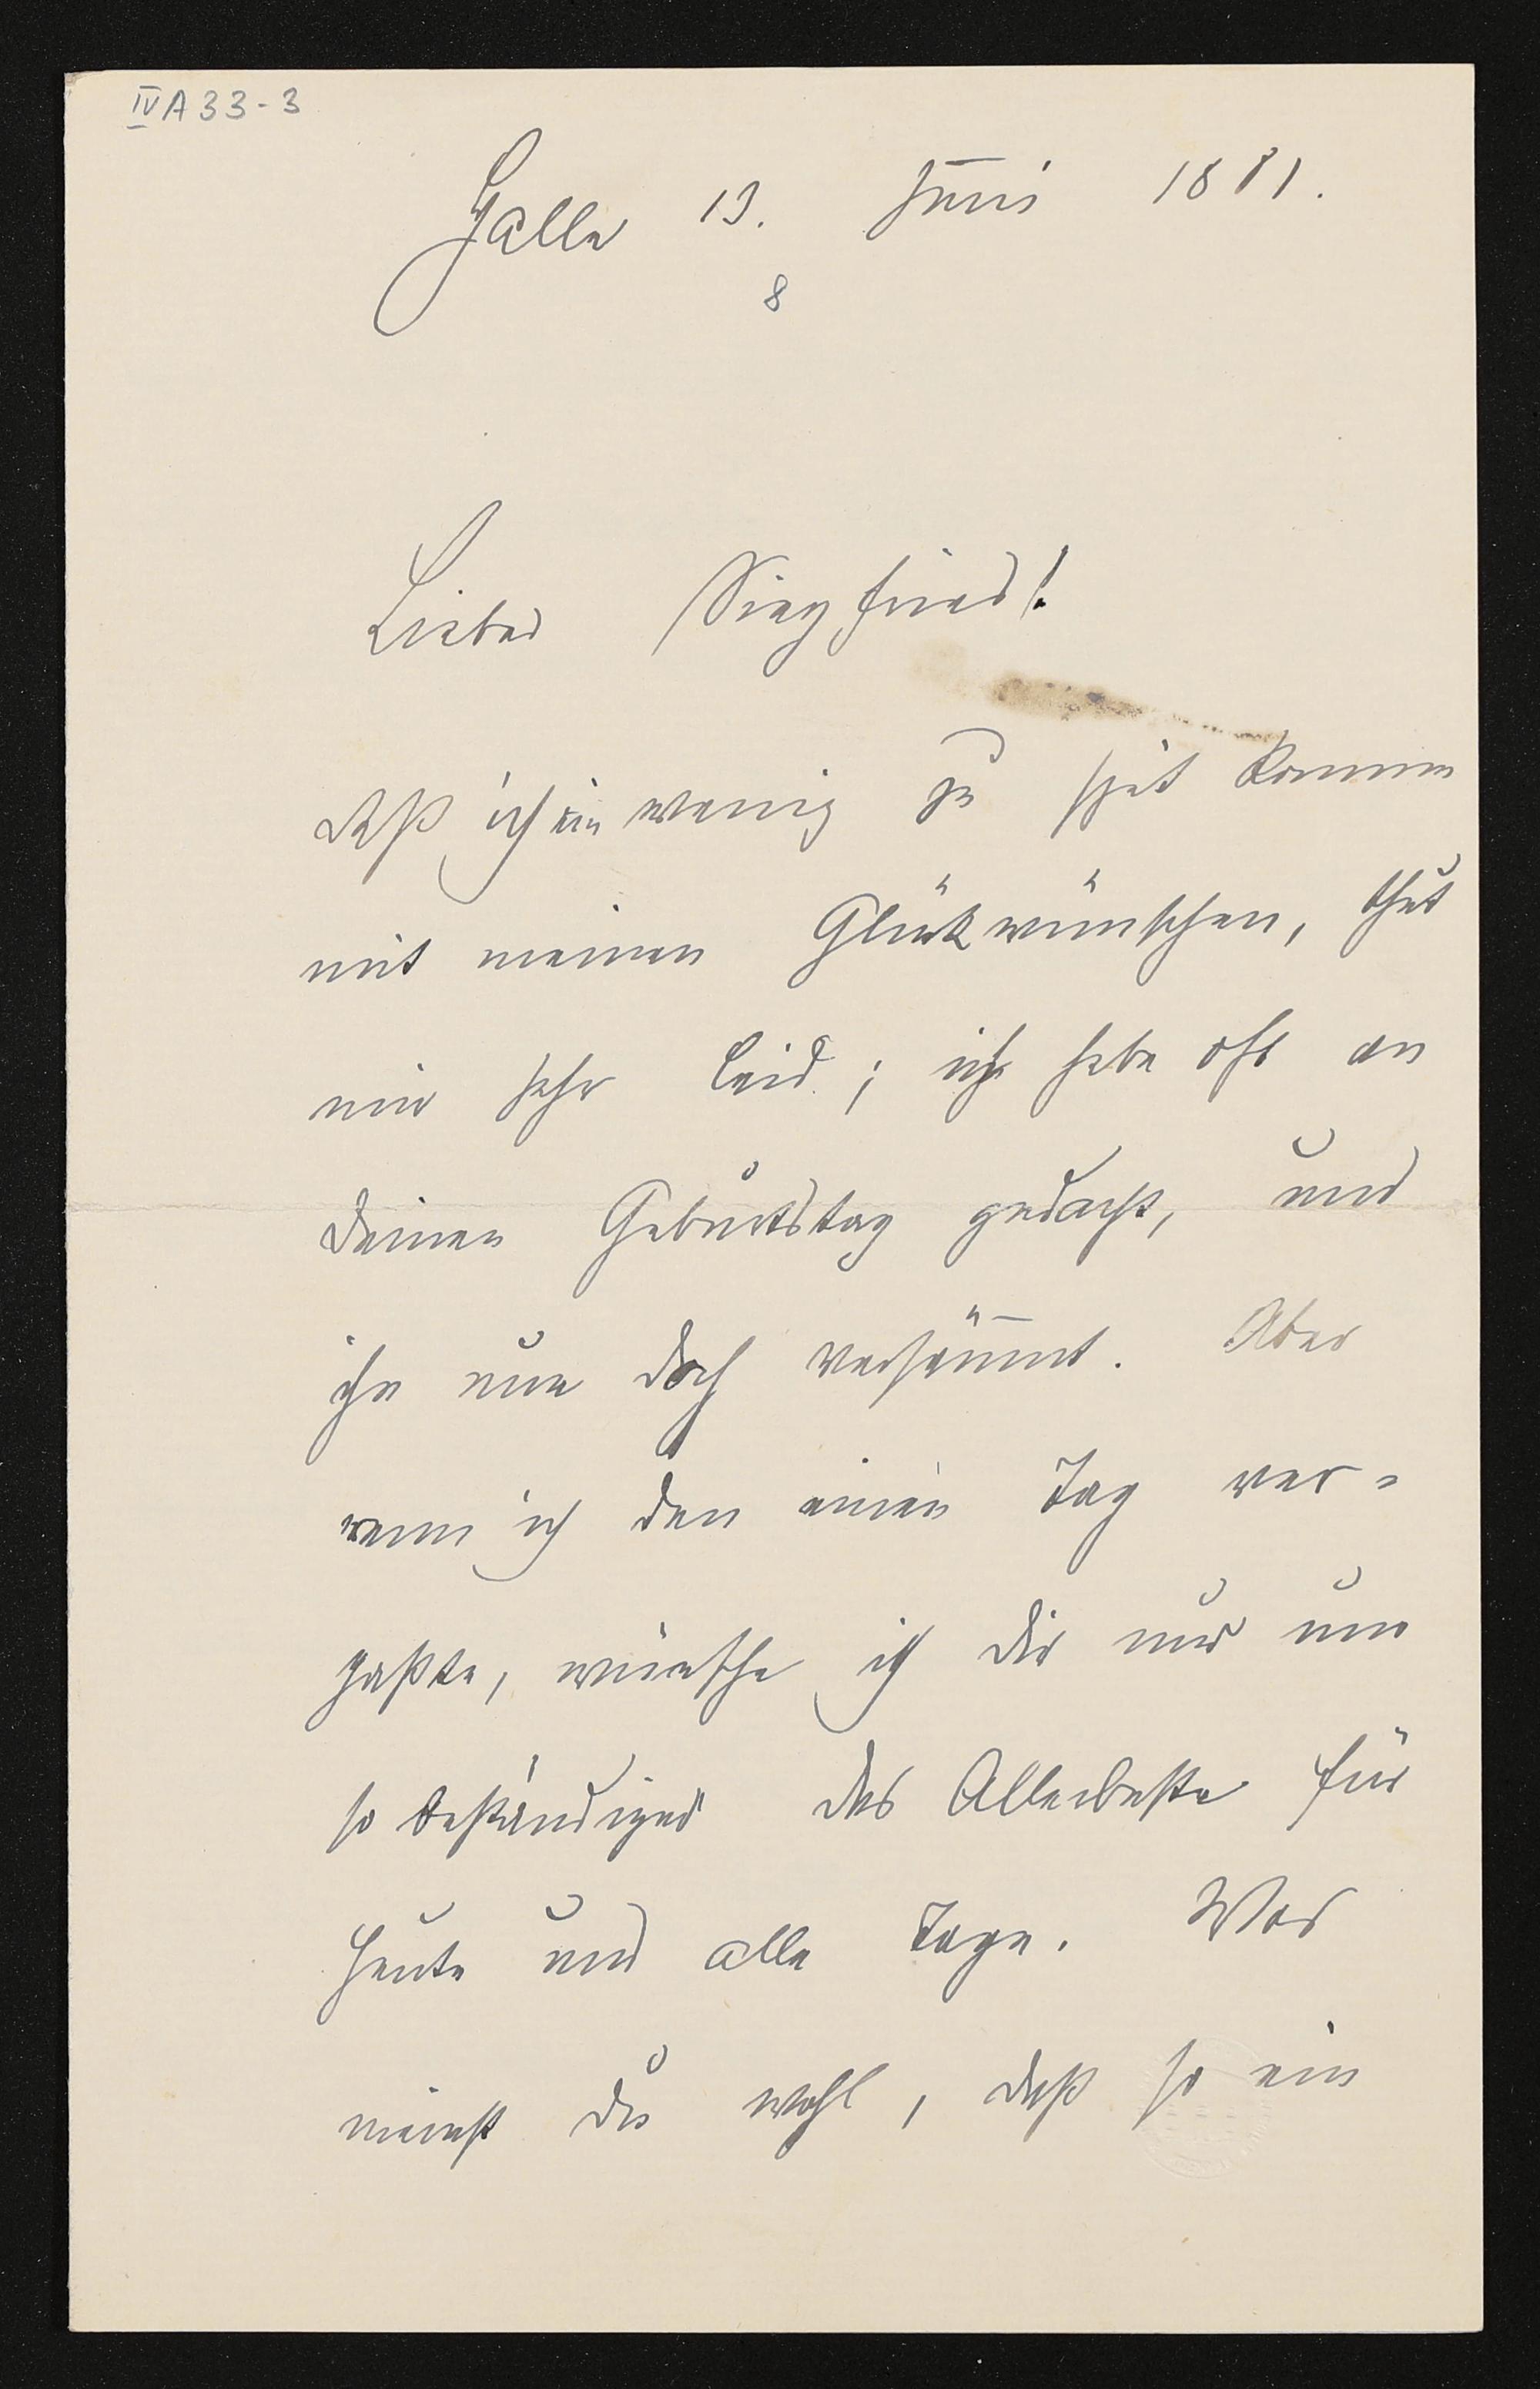 IV A 33-3
Halle 13. Juni 1881.
8
Lieber Siegfried!
daß ich ein wenig zu spät komme
mit meinen Glückwünschen, thut
mir sehr leid; ich habe oft an
deinen Geburtstag gedacht, und
ihn nun doch versäumt. Aber
wenn ich den einen Tag ver-
paßte, wünsche ich dir nur um
so beständiger das Allerbeste für
heute und alle Tage. Was
meinst du wohl, daß so ein